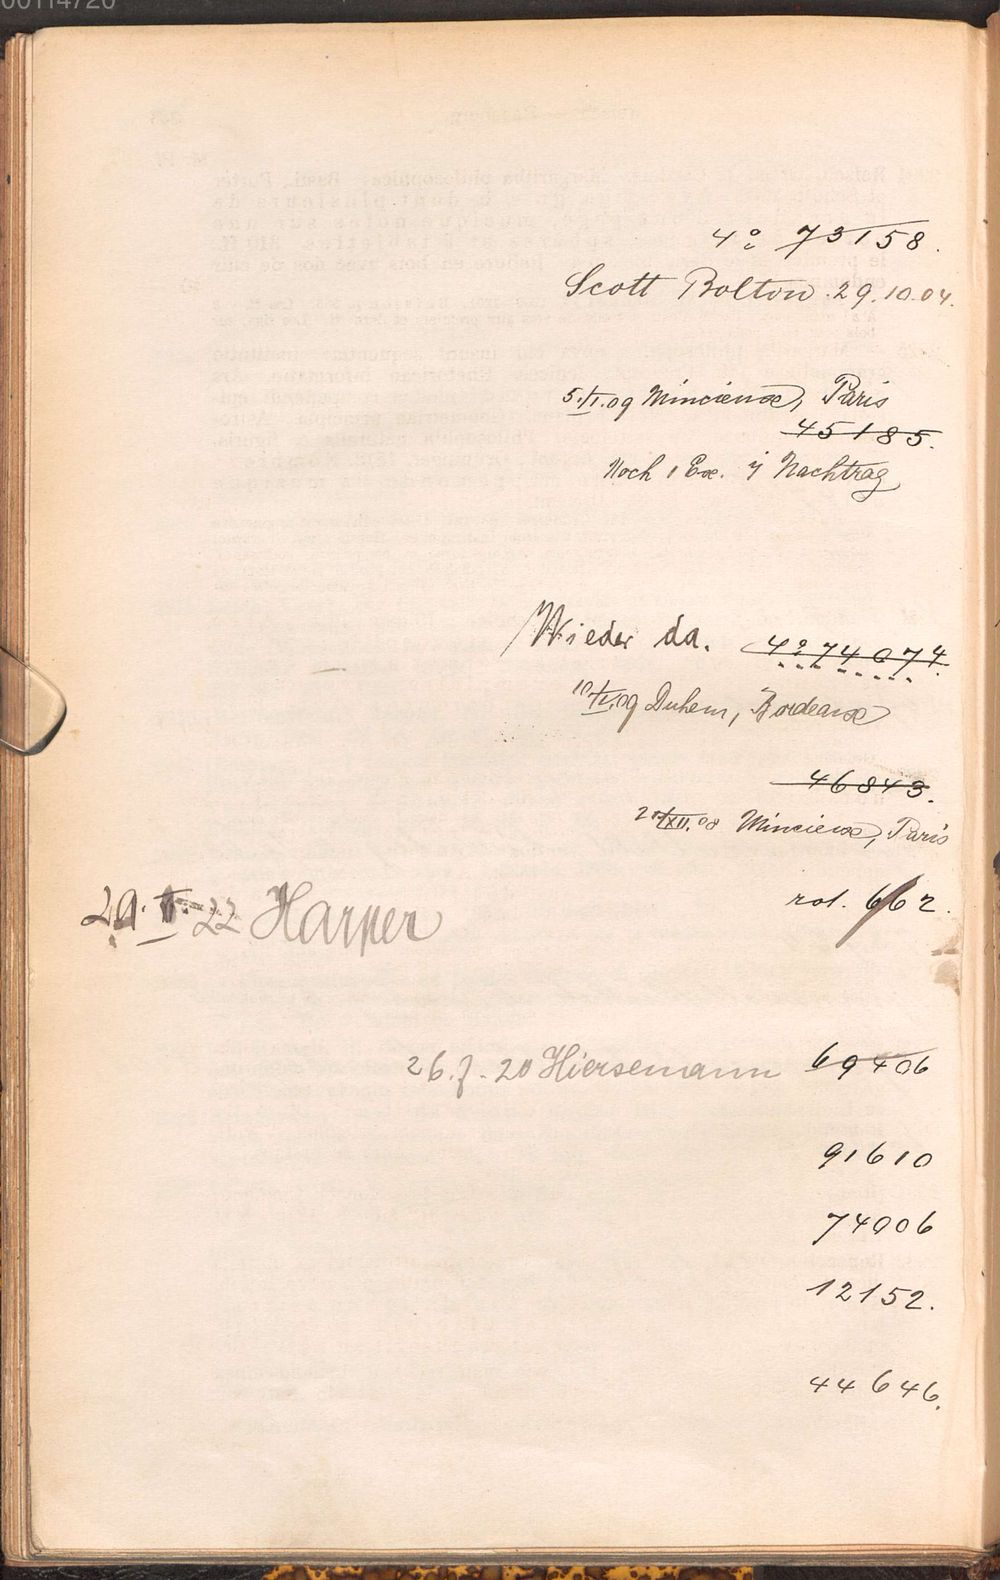 00114720
4° 73158.
Scott Bolton 29.10.04.
5.VI.09 Mincieux, Paris
45185.
Noch 1 Ex. i Nachtrag
Wieder da. 4° 74074.
Duhem, Bordeaux
46843.
XII.08 Mincieux, Paris
rot. 662.
22 Harper
26.7.20 Hiersemann 69406
91610
74006
12152.
44646.